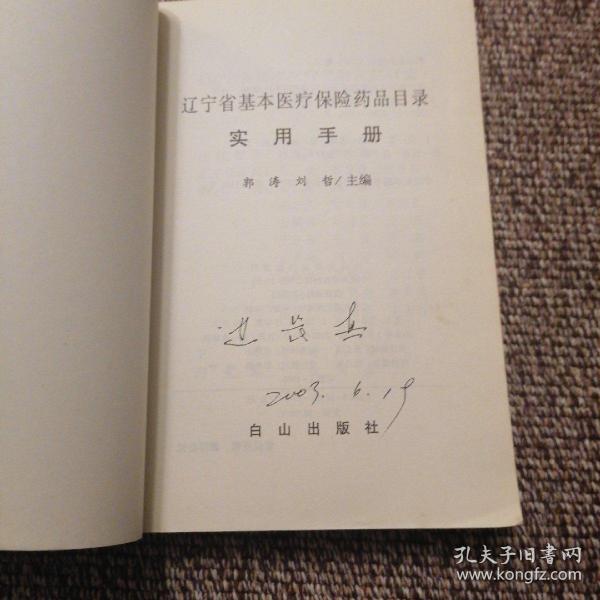 辽宁省基本医疗保险药品目录
实用手册
郭涛 刘哲/主编
2003.6.19
白山出版社
孔夫子旧书网
www.kongfz.com